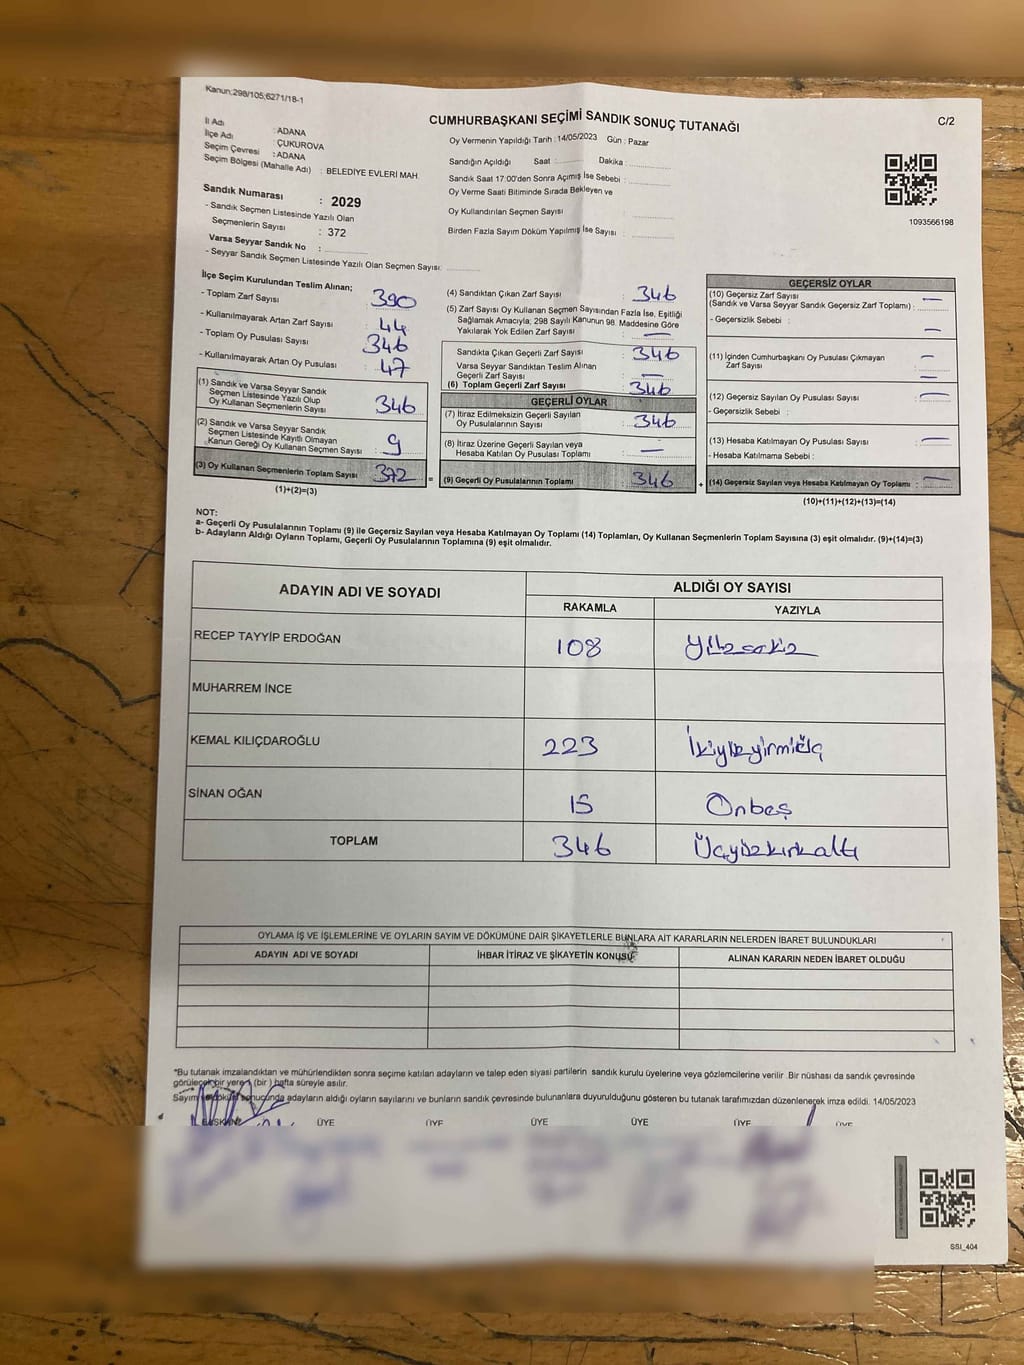 Kanun;298/105;6271/18-1
CUMHURBAŞKANI SEÇİMİ SANDIK SONUÇ TUTANAĞI
C/2
İl Adı : ADANA
İlçe Adı : ÇUKUROVA
Seçim Çevresi : ADANA
Seçim Bölgesi (Mahalle Adı) : BELEDİYE EVLERİ MAH.
Sandık Numarası : 2029
- Sandık Seçmen Listesinde Yazılı Olan
Seçmenlerin Sayısı : 372
Varsa Seyyar Sandık No :
- Seyyar Sandık Seçmen Listesinde Yazılı Olan Seçmen Sayısı:
Oy Vermenin Yapıldığı Tarih : 14/05/2023 Gün : Pazar
Sandığın Açıldığı Saat : Dakika :
Sandık Saat 17:00'den Sonra Açımış İse Sebebi :
Oy Verme Saati Bitiminde Sırada Bekleyen ve
Oy Kullandırılan Seçmen Sayısı :
Birden Fazla Sayım Döküm Yapılmış İse Sayısı :
1093566198
İlçe Seçim Kurulundan Teslim Alınan;
- Toplam Zarf Sayısı : 390
- Kullanılmayarak Artan Zarf Sayısı : 44
- Toplam Oy Pusulası Sayısı : 346
- Kullanılmayarak Artan Oy Pusulası : 47
(1) Sandık ve Varsa Seyyar Sandık
Seçmen Listesinde Yazılı Olup
Oy Kullanan Seçmenlerin Sayısı : 346
(2) Sandık ve Varsa Seyyar Sandık
Seçmen Listesinde Kayıtlı Olmayan
Kanun Gereği Oy Kullanan Seçmen Sayısı : 9
(3) Oy Kullanan Seçmenlerin Toplam Sayısı : 372 =
(1)+(2)=(3)
(4) Sandıktan Çıkan Zarf Sayısı : 346
(5) Zarf Sayısı Oy Kullanan Seçmen Sayısından Fazla İse, Eşitliği
Sağlamak Amacıyla; 298 Sayılı Kanunun 98. Maddesine Göre
Yakılarak Yok Edilen Zarf Sayısı : —
Sandıkta Çıkan Geçerli Zarf Sayısı : 346
Varsa Seyyar Sandıktan Teslim Alınan
Geçerli Zarf Sayısı : —
(6) Toplam Geçerli Zarf Sayısı : 346
GEÇERLİ OYLAR
(7) İtiraz Edilmeksizin Geçerli Sayılan
Oy Pusulalarının Sayısı : 346
(8) İtiraz Üzerine Geçerli Sayılan veya
Hesaba Katılan Oy Pusulası Toplamı : —
(9) Geçerli Oy Pusulalarının Toplamı : 346 +
GEÇERSİZ OYLAR
(10) Geçersiz Zarf Sayısı
(Sandık ve Varsa Seyyar Sandık Geçersiz Zarf Toplamı) : —
- Geçersizlik Sebebi : —
(11) İçinden Cumhurbaşkanı Oy Pusulası Çıkmayan
Zarf Sayısı : —
(12) Geçersiz Sayılan Oy Pusulası Sayısı : —
- Geçersizlik Sebebi :
(13) Hesaba Katılmayan Oy Pusulası Sayısı : —
- Hesaba Katılmama Sebebi :
(14) Geçersiz Sayılan veya Hesaba Katılmayan Oy Toplamı : —
(10)+(11)+(12)+(13)=(14)
NOT:
a- Geçerli Oy Pusulalarının Toplamı (9) ile Geçersiz Sayılan veya Hesaba Katılmayan Oy Toplamı (14) Toplamları, Oy Kullanan Seçmenlerin Toplam Sayısına (3) eşit olmalıdır. (9)+(14)=(3)
b- Adayların Aldığı Oyların Toplamı, Geçerli Oy Pusulalarının Toplamına (9) eşit olmalıdır.
ADAYIN ADI VE SOYADI
ALDIĞI OY SAYISI
RAKAMLA YAZIYLA
RECEP TAYYİP ERDOĞAN 108 Yüzsekiz
MUHARREM İNCE
KEMAL KILIÇDAROĞLU 223 İkiyüzyirmiüç
SİNAN OĞAN 15 Onbeş
TOPLAM 346 Üçyüzkırkaltı
OYLAMA İŞ VE İŞLEMLERİNE VE OYLARIN SAYIM VE DÖKÜMÜNE DAİR ŞİKAYETLERLE BUNLARA AİT KARARLARIN NELERDEN İBARET BULUNDUKLARI
ADAYIN ADI VE SOYADI İHBAR İTİRAZ VE ŞİKAYETİN KONUSU ALINAN KARARIN NEDEN İBARET OLDUĞU
*Bu tutanak imzalandıktan ve mühürlendikten sonra seçime katılan adayların ve talep eden siyasi partilerin sandık kurulu üyelerine veya gözlemcilerine verilir. Bir nüshası da sandık çevresinde
görülecek bir yere 1 (bir) hafta süreyle asılır.
Sayım ve döküm sonucunda adayların aldığı oyların sayılarını ve bunların sandık çevresinde bulunanlara duyurulduğunu gösteren bu tutanak tarafımızdan düzenlenerek imza edildi. 14/05/2023
BAŞKAN ÜYE ÜYE ÜYE ÜYE ÜYE ÜYE
SSI_404